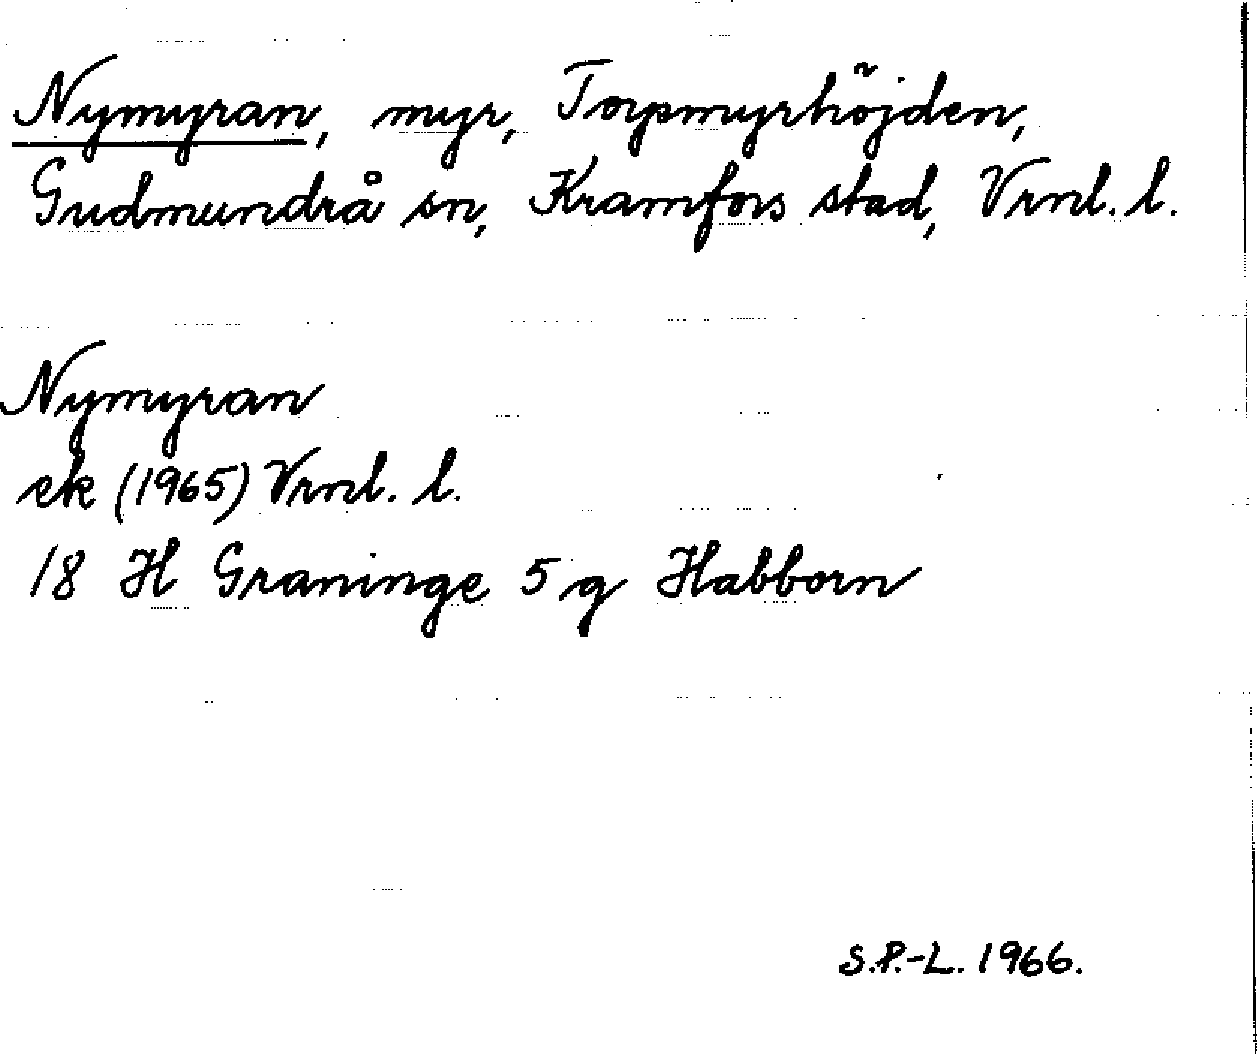 Nymyran, myr, Torpmyrhöjden,
Gudmundrå sn, Kramfors stad, Vrnl. l.
Nymyran
ek (1965) Vrnl. l.
18 H Graninge 5 g Habborn
S.P.-L. 1966.